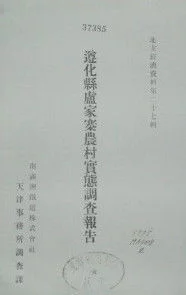 37385
北支經濟資料第二十七輯
遵化縣盧家寨農村實態調査報告
南滿洲鐵道株式會社
天津事務所調査課